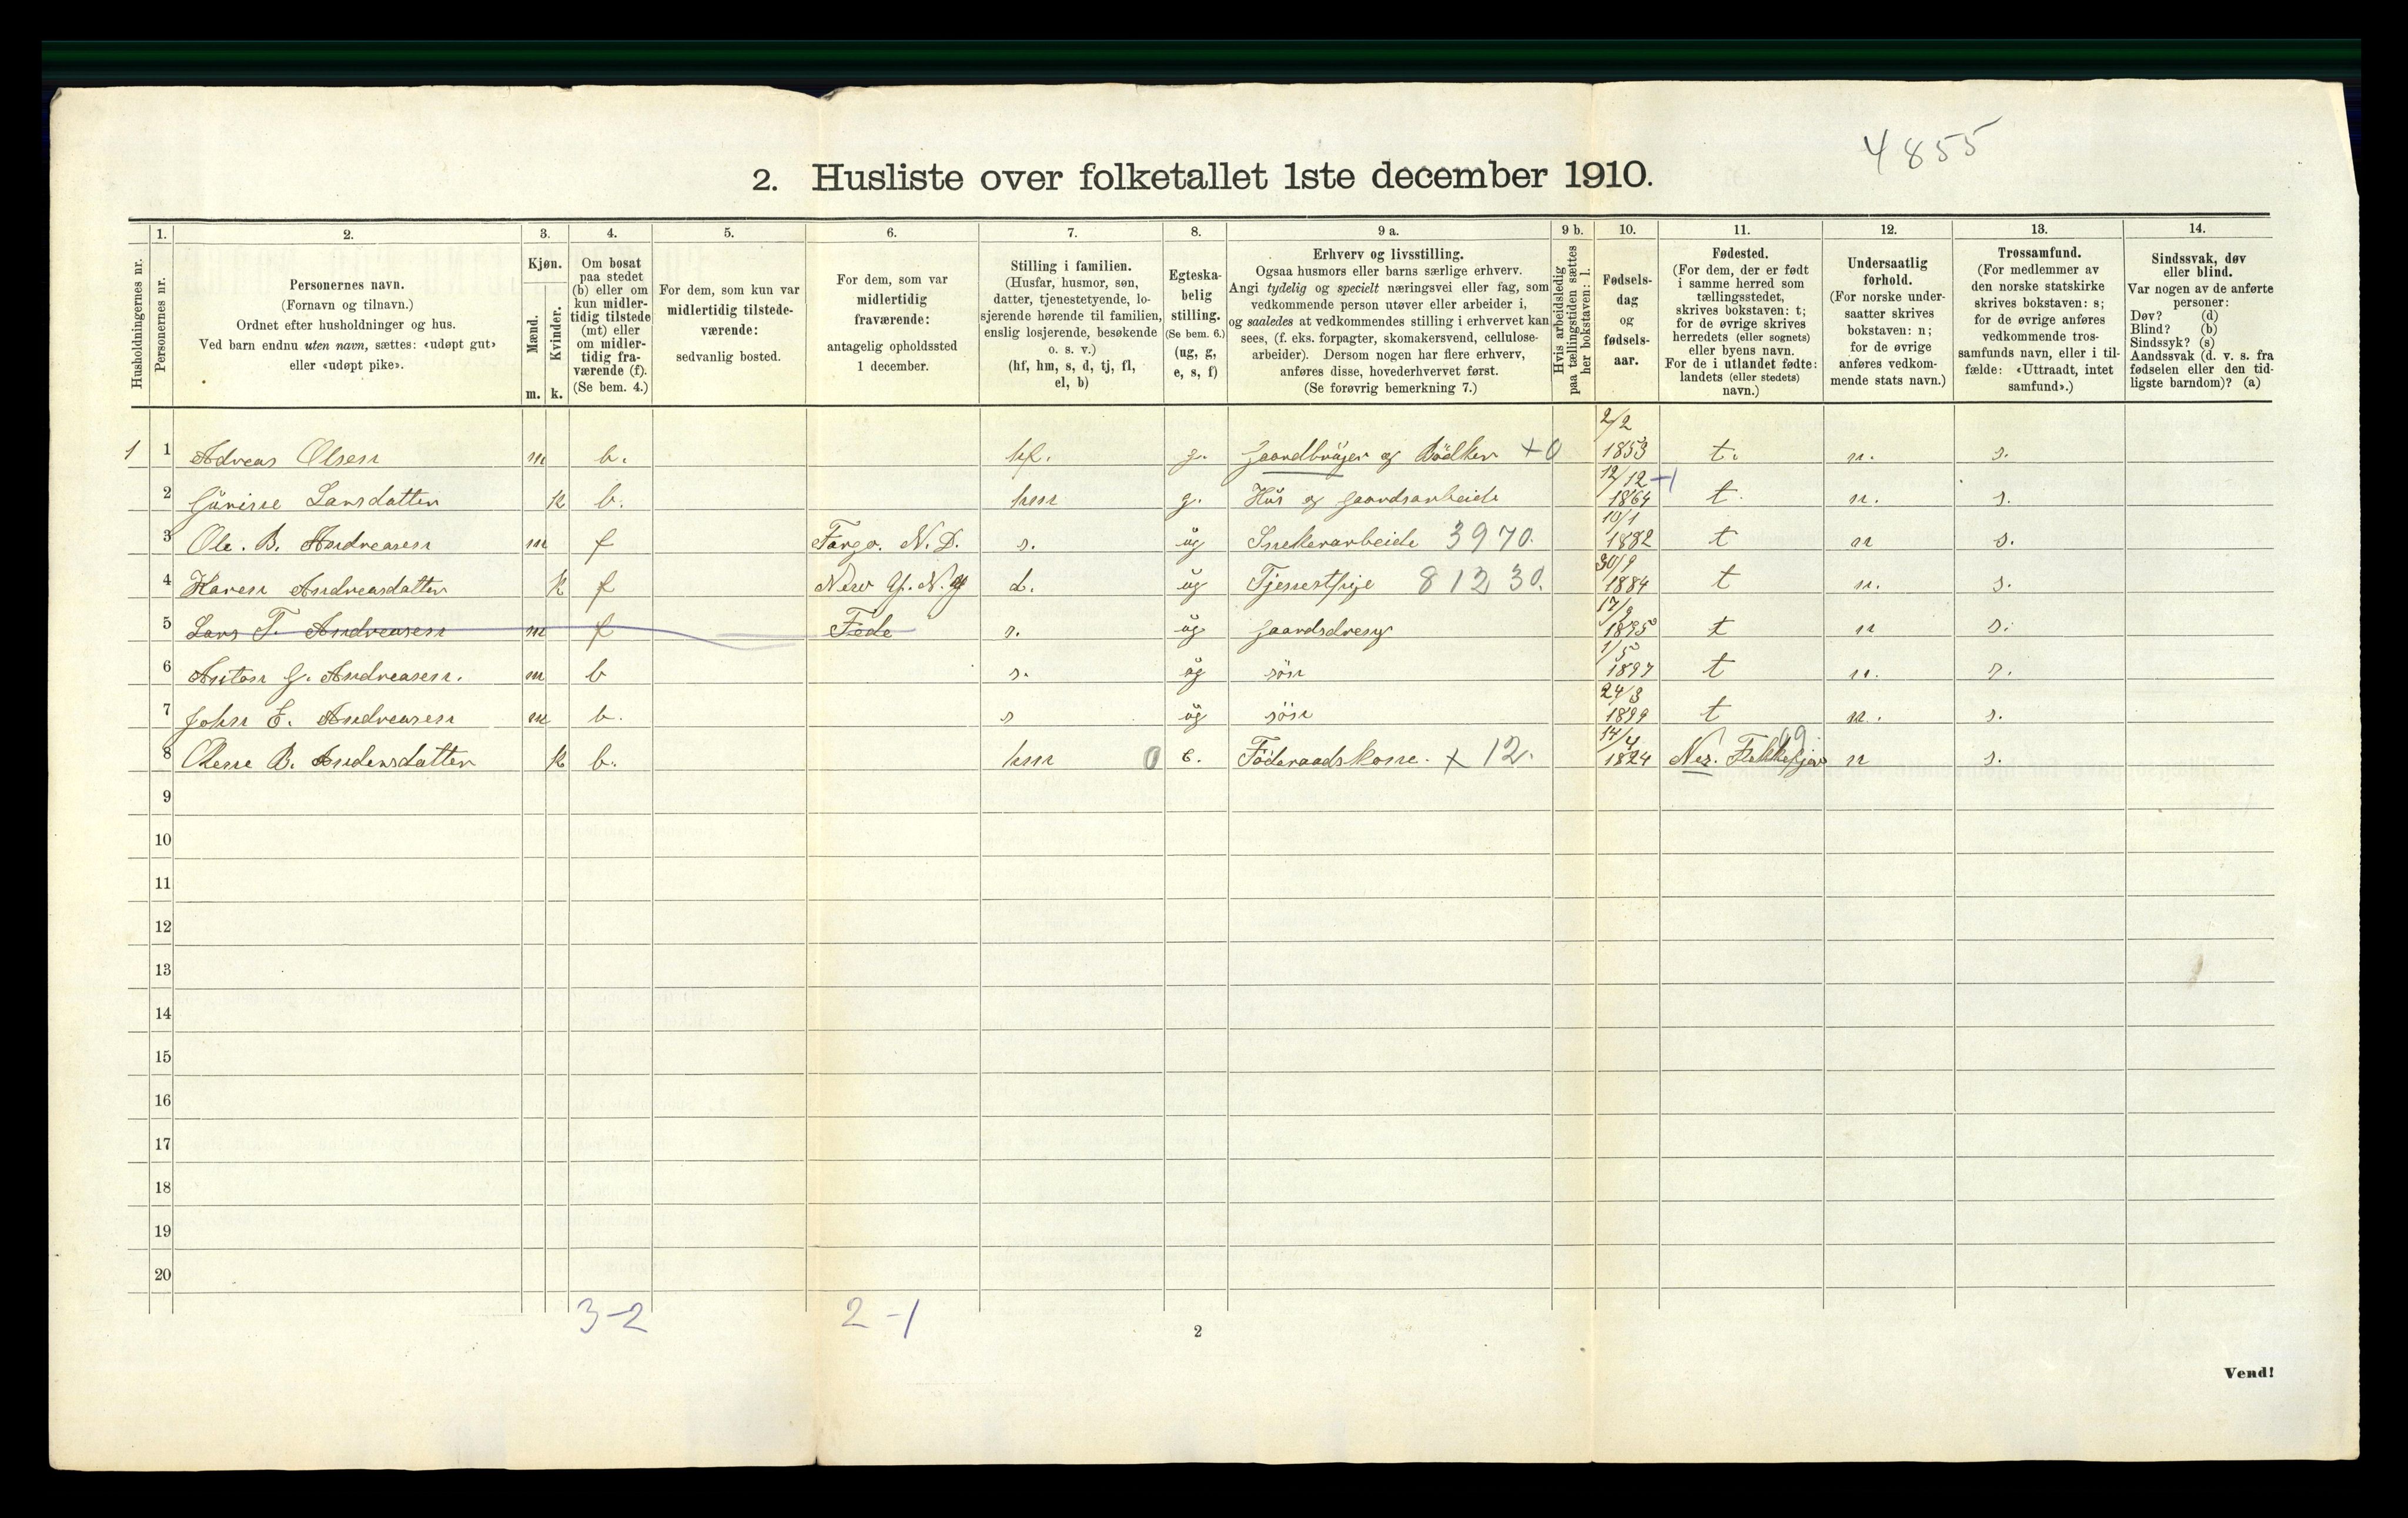 4855
2. Husliste over folketallet 1ste december 1910.
Husholdningernes nr.
1. Personernes nr.
2. Personernes navn.
(Fornavn og tilnavn.)
Ordnet efter husholdninger og hus.
Ved barn endnu uten navn, sættes: «udøpt gut»
eller «udøpt pike».
3. Kjøn.
Mænd. m.
Kvinder. k.
4. Om bosat
paa stedet
(b) eller om
kun midler-
tidig tilstede
(mt) eller
om midler-
tidig fra-
værende (f).
(Se bem. 4.)
5. For dem, som kun var
midlertidig tilstede-
værende:
sedvanlig bosted.
6. For dem, som var
midlertidig
fraværende:
antagelig opholdssted
1 december.
7. Stilling i familien.
(Husfar, husmor, søn,
datter, tjenestetyende, lo-
sjerende hørende til familien,
enslig losjerende, besøkende
o. s. v.)
(hf, hm, s, d, tj, fl,
el, b)
8. Egteska-
belig
stilling.
(Se bem. 6.)
(ug, g,
e, s, f)
9 a. Erhverv og livsstilling.
Ogsaa husmors eller barns særlige erhverv.
Angi tydelig og specielt næringsvei eller fag, som
vedkommende person utøver eller arbeider i,
og saaledes at vedkommendes stilling i erhvervet kan
sees, (f. eks. forpagter, skomakersvend, cellulose-
arbeider). Dersom nogen har flere erhverv,
anføres disse, hovederhvervet først.
(Se forøvrig bemerkning 7.)
9 b. Hvis arbeidsledig
paa tællingstiden sættes
her bokstaven: l.
10. Fødsels-
dag
og
fødsels-
aar.
11. Fødested.
(For dem, der er født
i samme herred som
tællingsstedet,
skrives bokstaven: t;
for de øvrige skrives
herredets (eller sognets)
eller byens navn.
For de i utlandet fødte:
landets (eller stedets)
navn.)
12. Undersaatlig
forhold.
(For norske under-
saatter skrives
bokstaven: n;
for de øvrige
anføres vedkom-
mende stats navn.)
13. Trossamfund.
(For medlemmer av
den norske statskirke
skrives bokstaven: s;
for de øvrige anføres
vedkommende tros-
samfunds navn, eller i til-
fælde: «Uttraadt, intet
samfund».)
14. Sindssvak, døv
eller blind.
Var nogen av de anførte
personer:
Døv? (d)
Blind? (b)
Sindssyk? (s)
Aandssvak (d. v. s. fra
fødselen eller den tid-
ligste barndom)? (a)
1 1 Adreas Olsen m b. hf. g. Gaardbrüger og Bödker +0 2/2 1853 t. n. s.
2 Gürine Larsdatter k b. hm g. Hüs og gaardsarbeide 12/12 -1 1864 t. n. s.
3 Ole. B. Andreasen m f Fargo. N.D. s. üg Snekerarbeide 3970. 10/1 1882 t n s.
4 Karen Andreasdatter k f New Y. N.Y d. üg Tjenestpige 81230. 30/9 1884 t n. s.
5 Lars T. Andreasen m f Fede s. üg gaardsdreng 17/9 1895 t n s.
6 Anton G. Andreasen. m b s. üg sön 1/5 1897 t n. s.
7 John E. Andreasen m b. s üg sön 24/3 1899 t n. s.
8 Olene B. Andersdatter k b. hm 0 e. Föderaadskone. + 12. 14/4 1824 Nes. Flekkefjor 99 n s.
9
10
11
12
13
14
15
16
17
18
19
20
3-2 2-1
2
Vend!